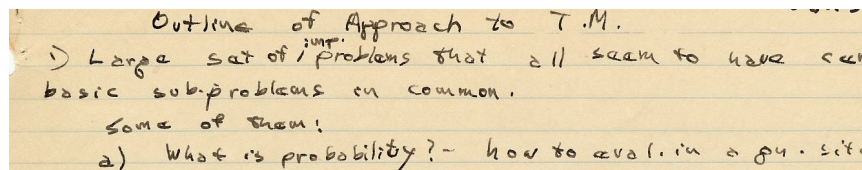 Outline of Approach to T.M.
1) Large set of imp. problems that all seem to have cer
basic sub-problems in common.
Some of them:
a) What is probability? - how to eval. in a gn. sit